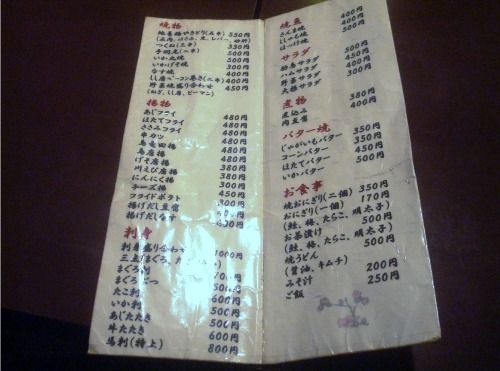 焼物
地鶏焼やきとり(五本) 550円
つくね(三本) 330円
手羽先(二本) 500円
いか丸焼 500円
いかげそ焼 300円
なす焼 400円
しし唐ベーコン巻き(二本) 400円
野菜焼盛り合わせ 450円
(ねぎ、しし唐、ピーマン)
揚物
あじフライ 480円
ほたてフライ 480円
ささみフライ 480円
串カツ 480円
鳥竜田揚 480円
鳥唐揚 480円
げそ唐揚 480円
川えび唐揚 480円
にんにく揚
チーズ揚
フライドポテト
揚げだし豆腐
揚げだしなす
刺身
刺身盛り合わせ 1000円
三点(まぐろ、たこ
まぐろ刺
まぐろ
たこ刺 500円
いか刺 600円
あじたたき 500円
牛たたき 600円
馬刺(特上) 800円
焼魚 400円
さんま焼 400円
ししゃも焼 500円
ほっけ焼
サラダ 450円
400円
ハムサラダ 450円
野菜サラダ 500円
大根サラダ
煮物 400円
煮込み 400円
肉豆腐
バター焼 350円
じゃがいもバター 350円
コーンバター 450円
ほたてバター 500円
いかバター
お食事 350円
焼おにぎり(二個) 170円
おにぎり(一個)
(鮭、梅、たらこ、明太子)
お茶漬け 500円
(鮭、梅、たらこ、明太子)
焼うどん 500円
(醤油、キムチ)
みそ汁 200円
ご飯 250円